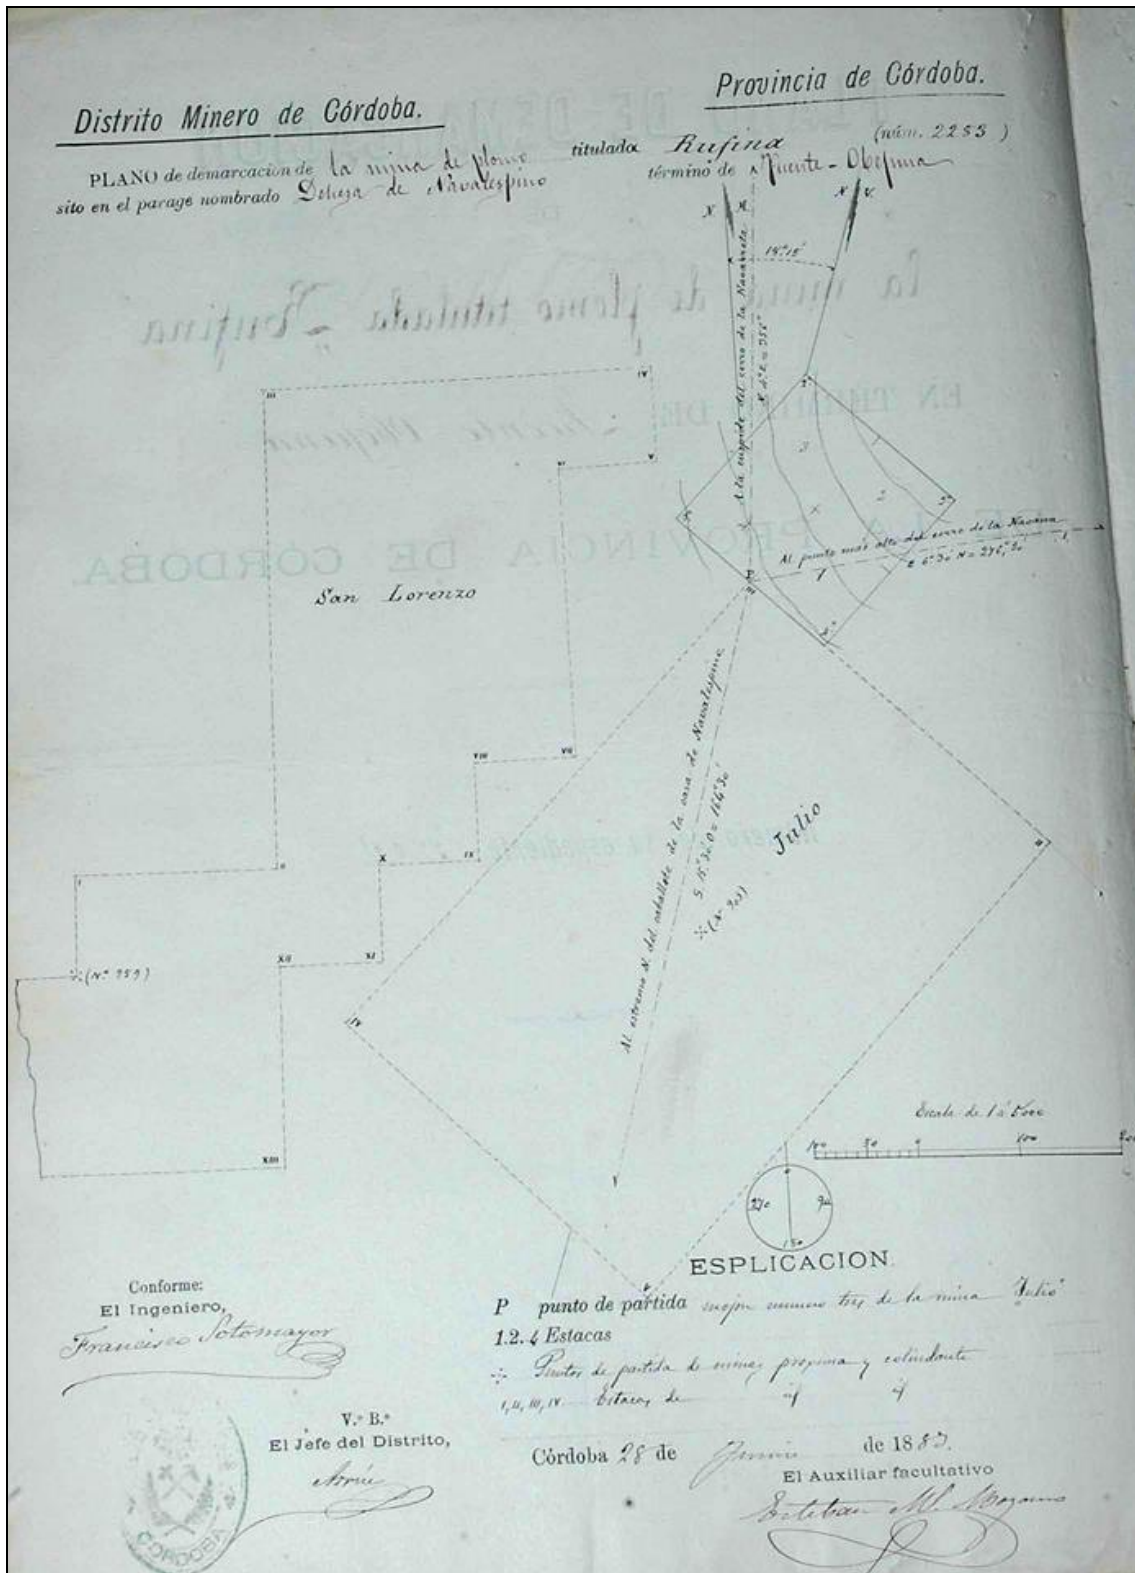 Distrito Minero de Córdoba.
Provincia de Córdoba.
PLANO de demarcacion de la mina de plomo titulada Rufina (núm. 2253)
sito en el parage nombrado Dehesa de Navalespino término de Fuente-Obejuna
N.
N
V.
18º15'
A la cúspide del cerro de la Navarreta
III
IV
V
VI
1ª
3
2
2ª
Al punto más alto del cerro de la Navarra
E 6º30' N = 276º,30'
1
P
III
San Lorenzo
Al estremo N. del caballete de la casa de Navalespino
S. 15º30' O = 164º30'
Julio
(Nº 903)
VIII
VII
I
II
X
IX
II
XII
XI
(Nº 959)
IV
XIII
V
Escala de 1 á 5000
100 50 0 100 200
0
270 90
180
ESPLICACION.
P punto de partida mojon numero tres de la mina "Julio"
1.2.4 Estacas
Puntos de partida de minas proxima y colindante
I, II, III, IV Estacas de id id
Conforme:
El Ingeniero,
Francisco Sotomayor
V.º B.º
El Jefe del Distrito,
Córdoba 28 de Junio de 1883.
El Auxiliar facultativo
Esteban
CORDOBA